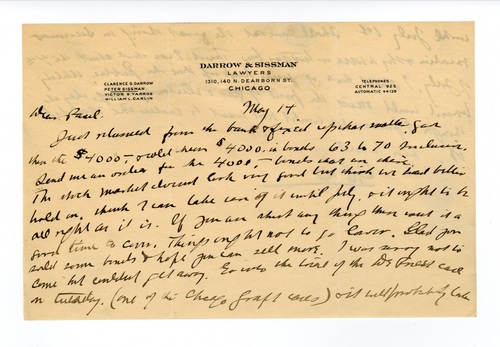 DARROW & SISSMAN
LAWYERS
1310, 140 N. DEARBORN ST.
CHICAGO
CLARENCE S. DARROW
PETER SISSMAN
VICTOR S. YARROS
WILLIAM L. CARLIN
TELEPHONES
CENTRAL 925
AUTOMATIC 44-139
May 17
Dear Paul.
Just returned from the bank & fixed up that matter. Got
then the $4000 & sold them $4000. in bonds 63 to 70 inclusive.
Send me an order for the 4000.— bonds that are there.
The stock market doesnt look very good but think we had better
hold on, think I can take care of it until July, & it ought to be
all right as it is. If you are short any thing this week is a
good time to cover. Things ought not to go lower. Glad you
sold some bonds & hope you can sell more. I was sorry not to
come but couldnt get away. Go into the trial of the case
on Tuesday. (one of the Chicago graft cases) & it will probably take